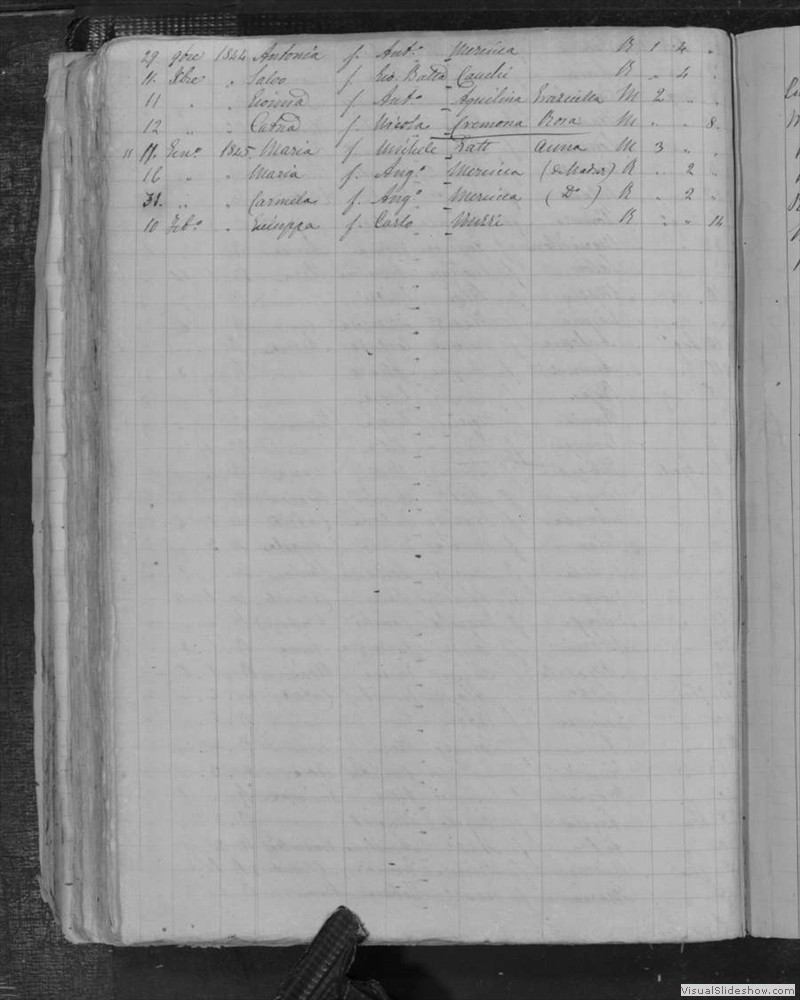 29 9bre 1844 Antonia f. Ant.o Mercieca R 1 4 "
11. Xbre " Salvo f Gio. Batta Cauchi R " 4 "
11 " " Gioanna f Ant.o Aquilina Graziella M 2 " "
12 " " Catna f Nicola Cremona Rosa M " " 8
" 11. Gen.o 1845 Maria f Michele Batt Anna M 3 " "
16 " " Maria f. Ang.o Mercieca R " 2 "
31. " " Carmela f. Ang.o Mercieca ( Do ) R " 2 "
10 Feb.o " Giuseppa f. Carlo R " " 14
VisualSlideshow.com